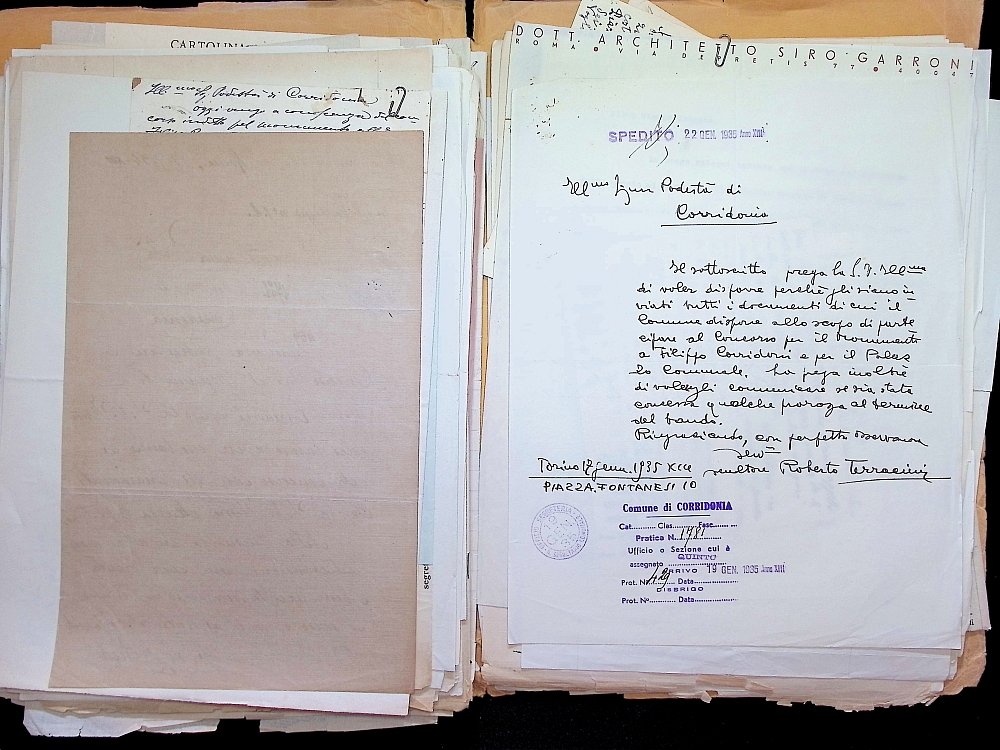 CARTOLINA
Ill mo Sig Podestà di Corridonia
oggi vengo a conoscenza del con
corso indetto pel monumento a
DOTT. ARCHITETTO SIRO GARRONI
ROMA • VIA DEPRETIS 77 • 40047
SPEDITO 22 GEN. 1935 Anno XIII
Ill mo Signor Podestà di
Corridonia
Il sottoscritto prega la S. V. Ill ma
di voler disporre perchè gli siano in
viati tutti i documenti di cui il
Comune dispone allo scopo di parte
cipare al Concorso per il Monumento
a Filippo Corridoni e per il Palaz
zo Comunale. La prega inoltre
di volergli comunicare se sia stata
concessa qualche proroga al termine
del bando.
Ringraziando, con perfetta osservanza
scultore Roberto Terracini
Torino 17 genn. 1935 XIII
PIAZZA FONTANESI 10
Comune di CORRIDONIA
Cat. Clas. Fasc.
Pratica N. 1781
Ufficio o Sezione cui è
QUINTO
assegnato
ARRIVO 19 GEN. 1935 Anno XIII
Prot. N. 429 Data
DISBRIGO
Prot. Nº Data
segre